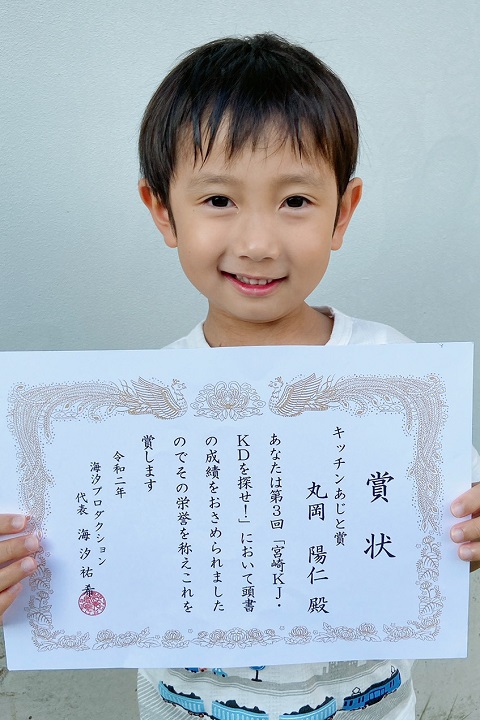 賞状
キッチンあじと賞
丸岡 陽仁 殿
あなたは第3回「宮崎KJ・
KDを探せ!」において頭書
の成績をおさめられました
のでその栄誉を称えこれを
賞します
令和二年
海汐プロダクション
代表 海汐祐希